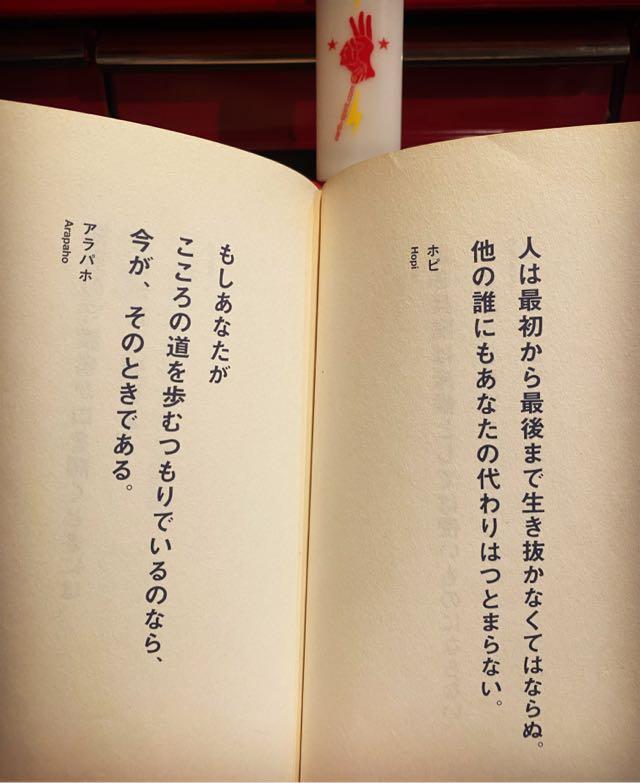 人は最初から最後まで生き抜かなくてはならぬ。
他の誰にもあなたの代わりはつとまらない。
ホピ
Hopi
もしあなたが
こころの道を歩むつもりでいるのなら、
今が、そのときである。
アラパホ
Arapaho